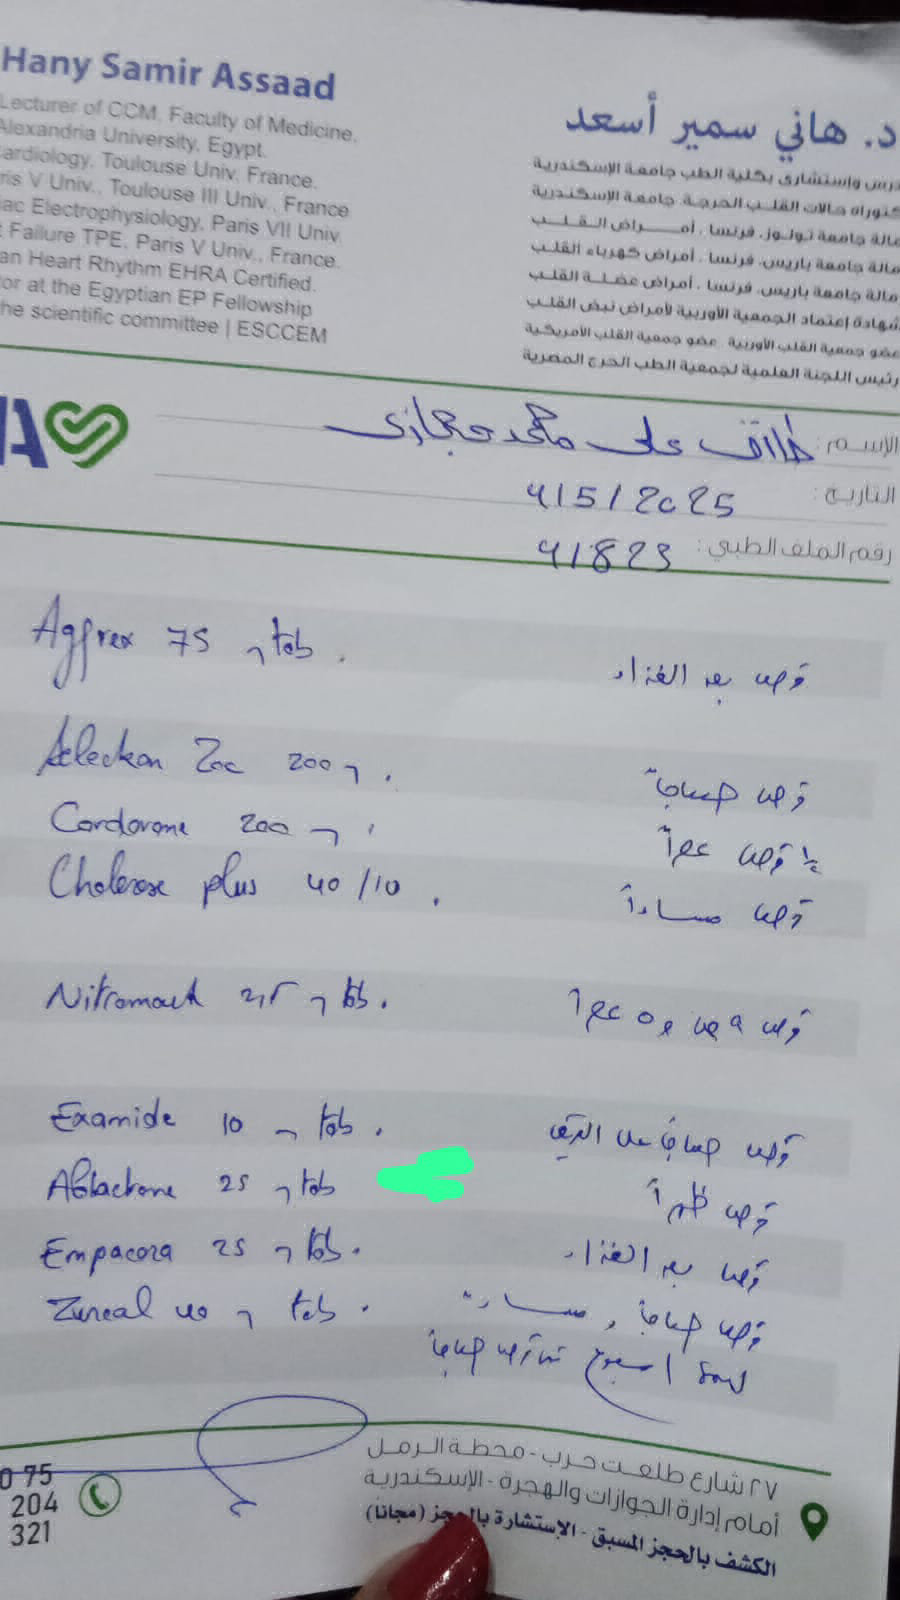 Hany Samir Assaad
Lecturer of CCM, Faculty of Medicine,
Alexandria University, Egypt.
ardiology, Toulouse Univ. France.
ris V Univ., Toulouse III Univ., France
ac Electrophysiology, Paris VII Univ.
t Failure TPE, Paris V Univ., France.
an Heart Rhythm EHRA Certified.
or at the Egyptian EP Fellowship
he scientific committee | ESCCEM
د. هاني سمير أسعد
درس وإستشاري بكلية الطب جامعة الإسكندرية
كتوراه حالات القلب الحرجة، جامعة الإسكندرية
مالة جامعة تولوز، فرنسا . أمراض القلب
مالة جامعة باريس، فرنسا . أمراض كهرباء القلب
مالة جامعة باريس، فرنسا . أمراض عضلة القلب
شهادة إعتماد الجمعية الأوربية لأمراض نبض القلب
عضو جمعية القلب الأوربية، عضو جمعية القلب الأمريكية
رئيس اللجنة العلمية لجمعية الطب الحرج المصرية
A
الإسم: طارق على محمد حجازى
التاريخ: 4/5/2025
رقم الملف الطبي: 41823
Aggrex 75 mg tab. قرص بعد الغذاء
Selecken Zoc 200 mg. قرص صباحاً
Cordarone 200 mg. ½ قرص عصراً
Cholerose plus 40/10. قرص مساءاً
Nitromack 2,5 mg tab. قرص 9 ص و 5 عصراً
Examide 10 mg tab. قرص صباحاً على الريق
Aldactone 25 mg tab قرص ظهراً
Empacoza 25 mg tab. قرص بعد الغذاء
Zurcal 40 mg tab. قرص صباحاً و مساءاً
لمدة أسبوع ثم قرص صباحاً
٢٧ شارع طلعت حرب - محطة الرمل
أمام إدارة الجوازات والهجرة - الإسكندرية
الكشف بالحجز المسبق - الإستشارة بالحجز (مجاناً)
0 75
204
321